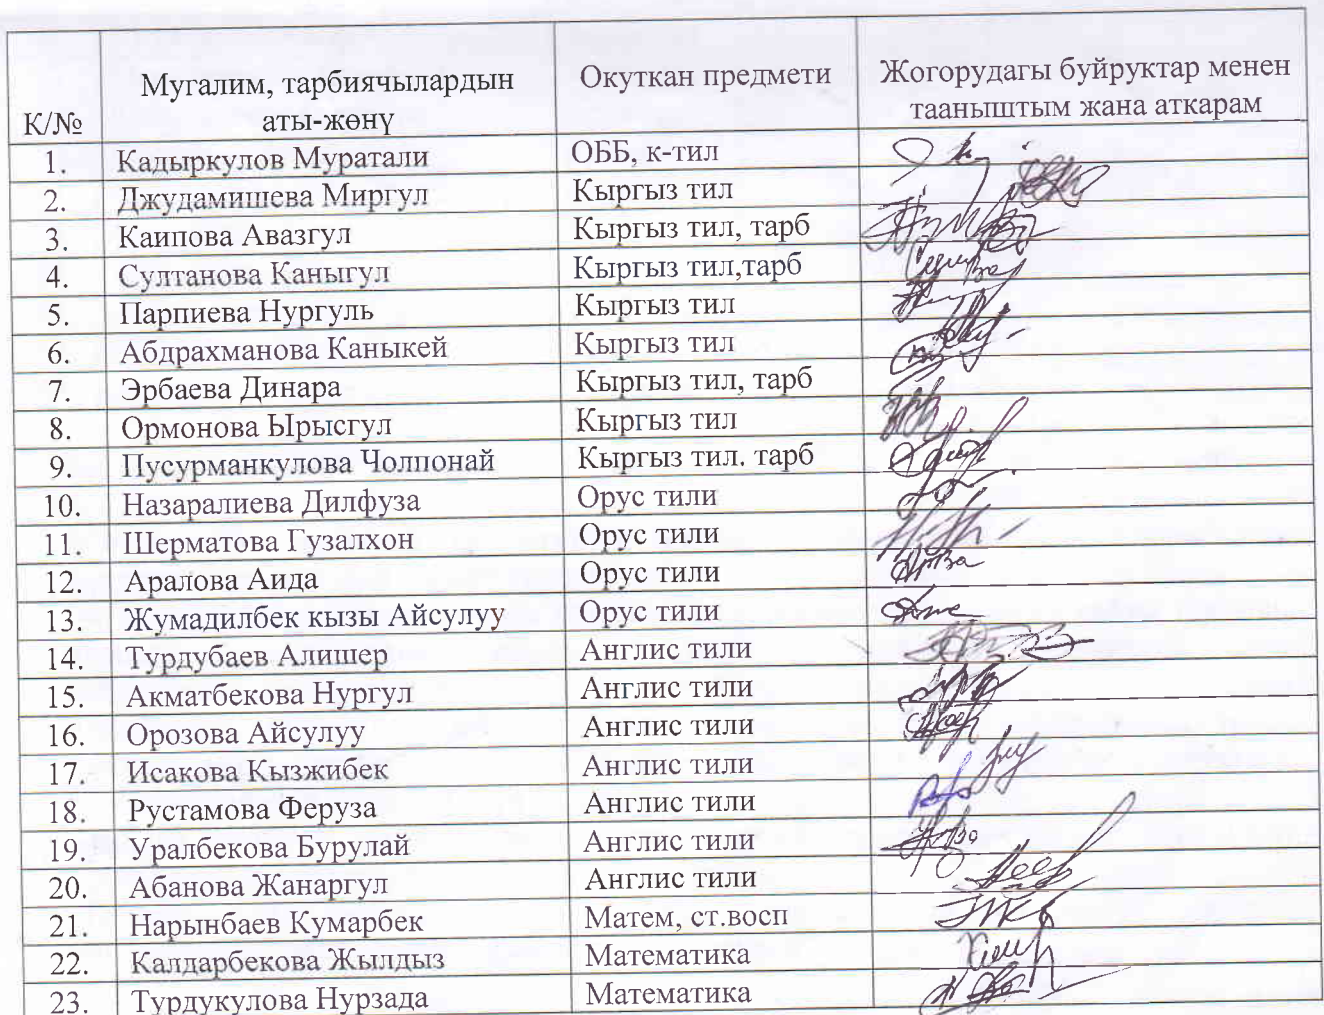 К/№ Мугалим, тарбиячылардын аты-жөнү Окуткан предмети Жогорудагы буйруктар менен тааныштым жана аткарам
1. Кадыркулов Муратали ОББ, к-тил
2. Джудамишева Миргул Кыргыз тил
3. Каипова Авазгул Кыргыз тил, тарб
4. Султанова Каныгул Кыргыз тил,тарб
5. Парпиева Нургуль Кыргыз тил
6. Абдрахманова Каныкей Кыргыз тил
7. Эрбаева Динара Кыргыз тил, тарб
8. Ормонова Ырысгул Кыргыз тил
9. Пусурманкулова Чолпонай Кыргыз тил. тарб
10. Назаралиева Дилфуза Орус тили
11. Шерматова Гузалхон Орус тили
12. Аралова Аида Орус тили
13. Жумадилбек кызы Айсулуу Орус тили
14. Турдубаев Алишер Англис тили
15. Акматбекова Нургул Англис тили
16. Орозова Айсулуу Англис тили
17. Исакова Кызжибек Англис тили
18. Рустамова Феруза Англис тили
19. Уралбекова Бурулай Англис тили
20. Абанова Жанаргул Англис тили
21. Нарынбаев Кумарбек Матем, ст.восп
22. Калдарбекова Жылдыз Математика
23. Турдукулова Нурзада Математика